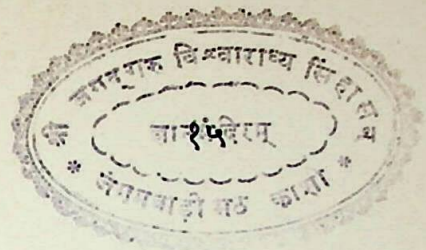 श्री जगद्गुरु विश्वाराध्य सिंहासन
ज्ञानमंदिरम्
१५
* जंगमवाड़ी मठ काशी *